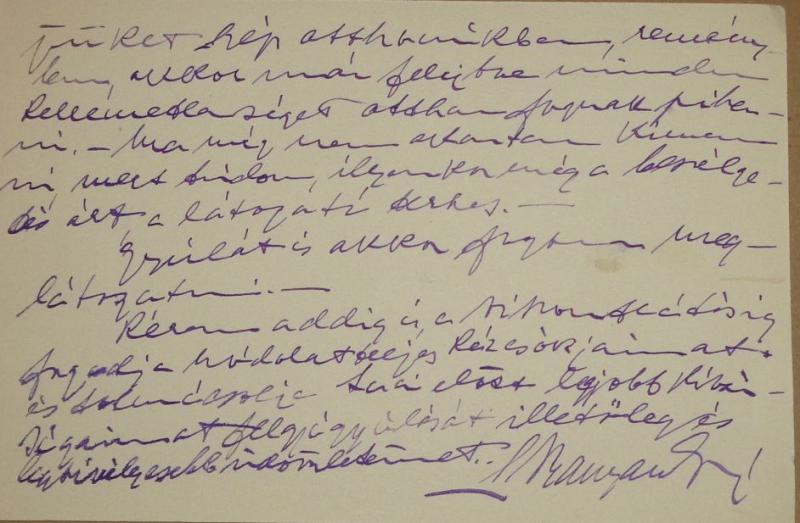 jüket szép otthonukban, remény-
lem, akkor már felejtve minden
kellemetlenséget otthon fognak pihen-
ni. – Ma még nem akartam kimen-
ni mert tudom, ilyenkor még a beszélge-
tés árt, a látogató terhes. –
Gyulát is akkor fogom meg-
látogatni. –
Kérem addig is, a viszontlátásig
fogadja hódolatteljes kézcsókjaimat
és tolmácsolja előtt legjobb kíván-
ságaimat felgyógyulását illetőleg és
legszívélyesebb üdvözletemet.